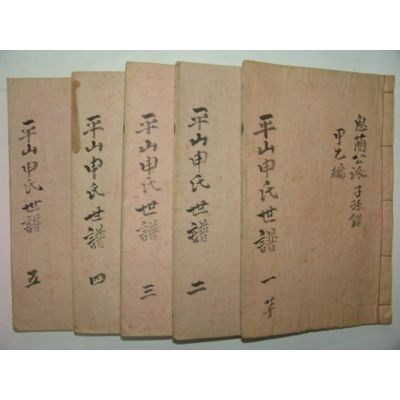 恩蘭公派子孫錄
甲乙編
平山申氏世譜 一
平山申氏世譜 二
平山申氏世譜 三
平山申氏世譜 四
平山申氏世譜 五